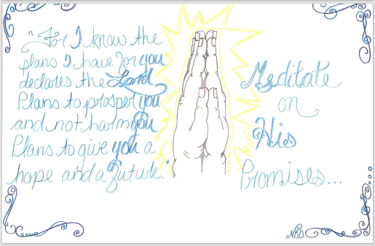 "For I know the
plans I have for you
declares the Lord
Plans to prosper you
and not harm you
Plans to give you a
hope and a future."
Meditate
on
His
Promises...